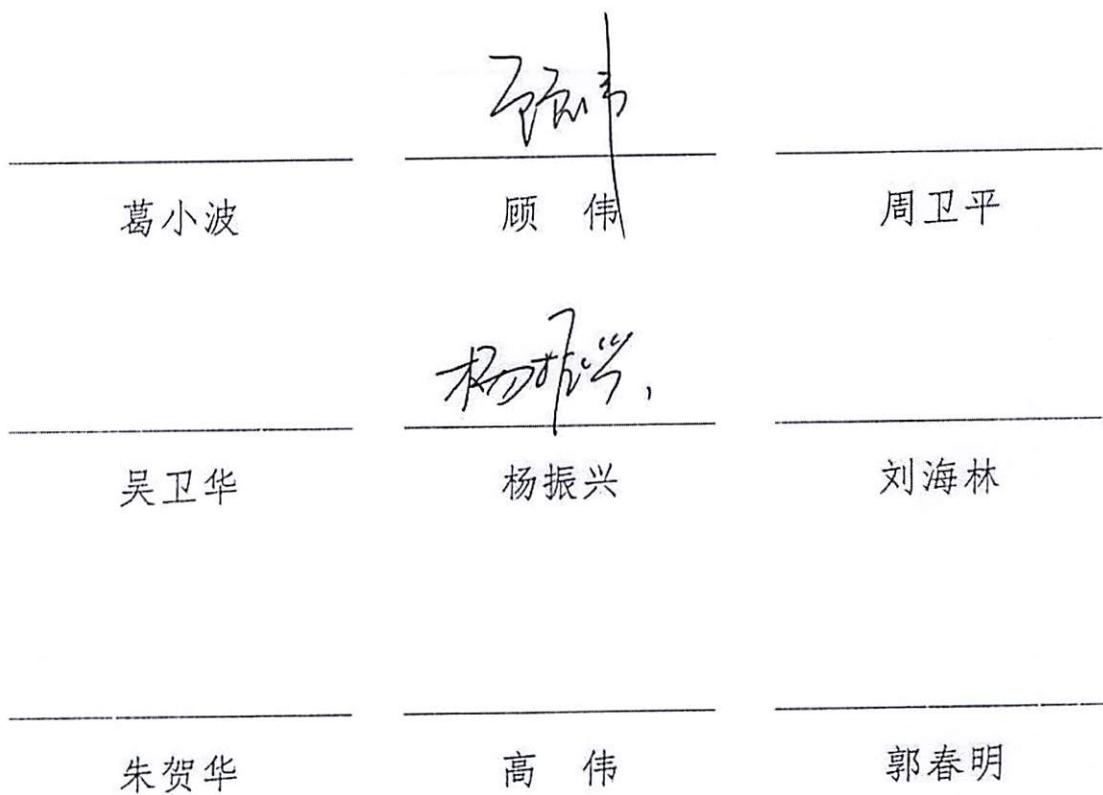 顾伟
葛小波 顾 伟 周卫平
杨振兴
吴卫华 杨振兴 刘海林
朱贺华 高 伟 郭春明